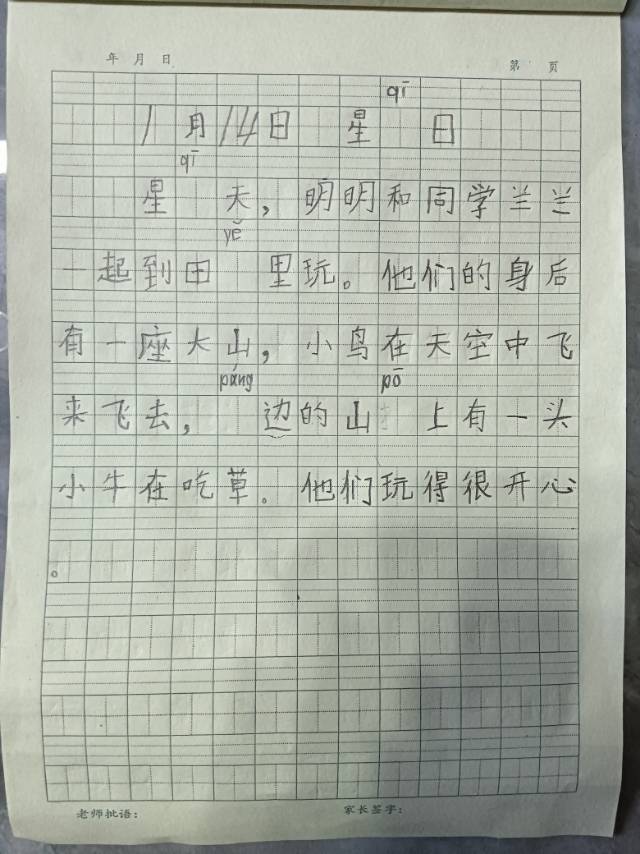 年 月 日 第 页
qī
1月14日 星 日
qī
星 天，明明和同学兰兰
yě
一起到田 里玩。他们的身后
有一座大山，小鸟在天空中飞
páng pō
来飞去， 边的山 上有一头
小牛在吃草。他们玩得很开心
。
老师批语： 家长签字：